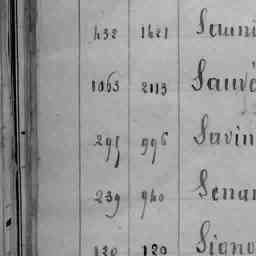 432 1621 Saunı
1063 2113 Sauvé
295 996 Savin
239 940 Senar
120 120 Signo